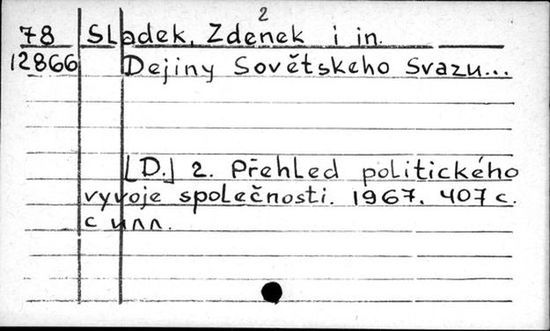 2
78 Sladek, Zdenek i in.
12866 Dejiny Sovětskeho Svazu...
[D.] 2. Přehled politického
vyvoje společnosti. 1967. 407 c.
с илл.